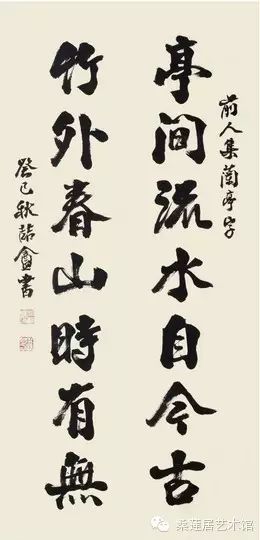 前人集蘭亭字
亭間流水自今古
竹外春山時有無
癸巳秋喆盦書
桑蓮居艺术馆